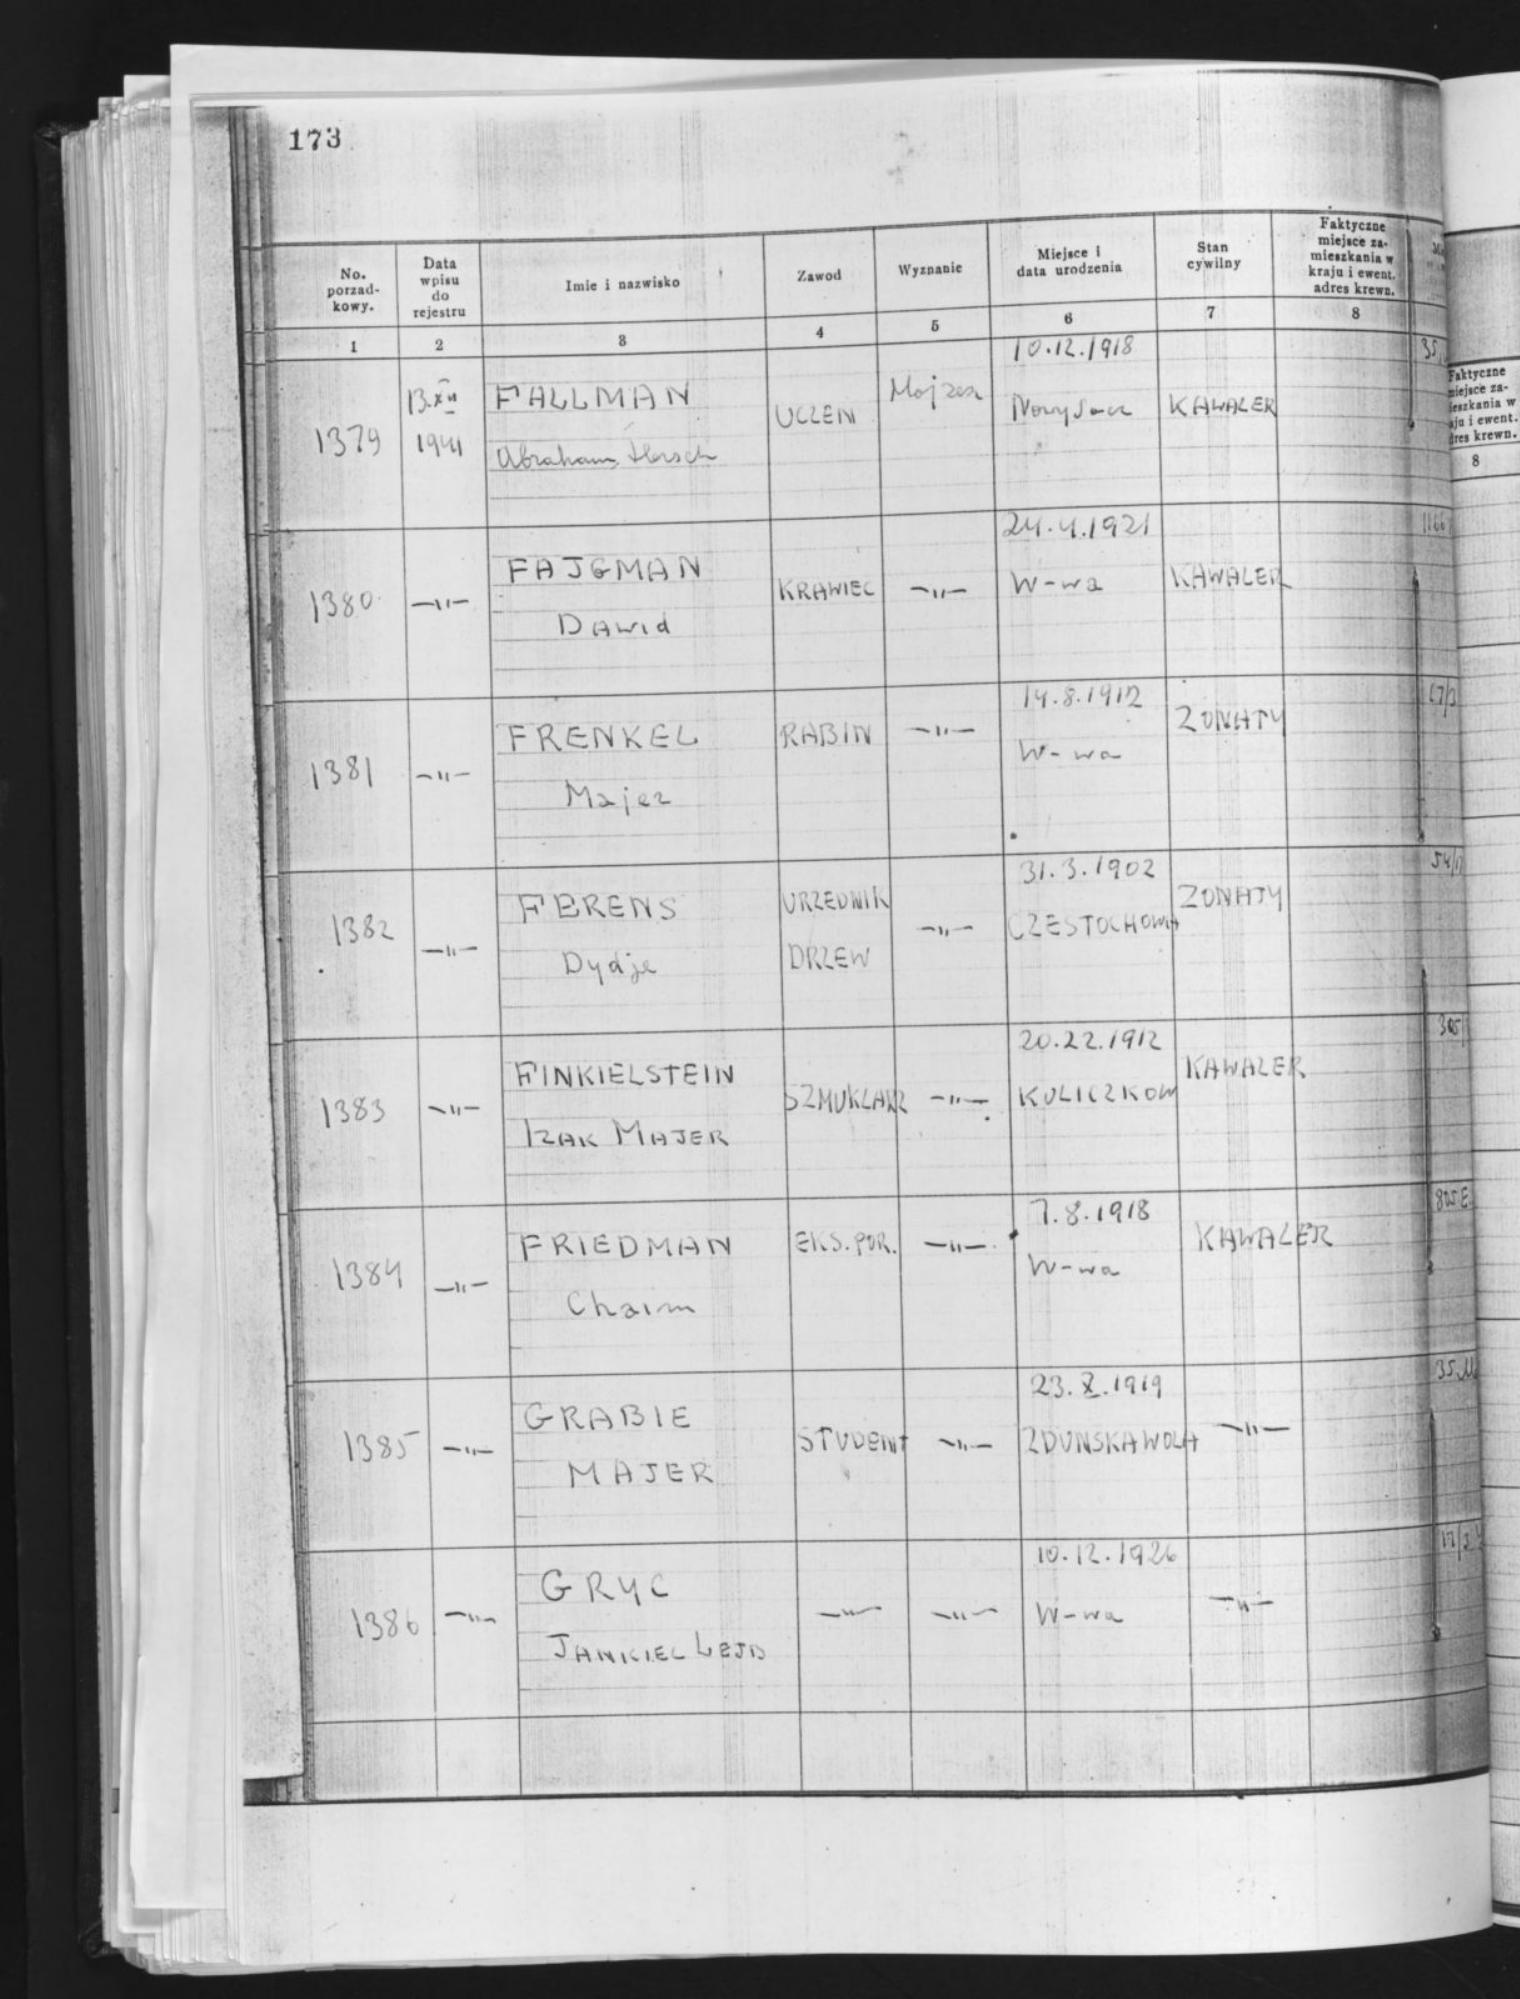 173
No. porzad- kowy.
Data wpisu do rejestru
Imie i nazwisko
Zawod
Wyznanie
Miejsce i data urodzenia
Stan cywilny
Faktyczne miejsce za- mieszkania w kraju i ewent. adres krewn.
1 2 3 4 5 6 7 8
10.12.1918
13.XII FALLMAN Mojzesz
1379 1941 Abraham Hersch UCZEN Nowy Sacz KAWALER
24.4.1921
FAJGMAN
1380 —"— KRAWIEC —"— W-wa KAWALER
Dawid
14.8.1912
FRENKEL RABIN —"— ZONATY
1381 —"— W-wa
Majer
31.3.1902
FERENS URZEDNIK ZONATY
1382 —"— —"— CZESTOCHOWA
Dydje DRZEW
20.22.1912
FINKIELSTEIN KAWALER
1383 —"— SZMUKLARZ —"— KULICZKOW
IZAK MAJER
7.8.1918
FRIEDMAN EKS.POR. —"— KAWALER
1384 —"— W-wa
Chaim
23.X.1919
GRABIE
1385 —"— STUDENT —"— ZDUNSKAWOLA —"—
MAJER
10.12.1926
GRYC
1386 —"— —"— —"— W-wa —"—
JANKIEL LEJB
Faktyczne
miejsce za-
mieszkania w
kraju i ewent.
adres krewn.
8